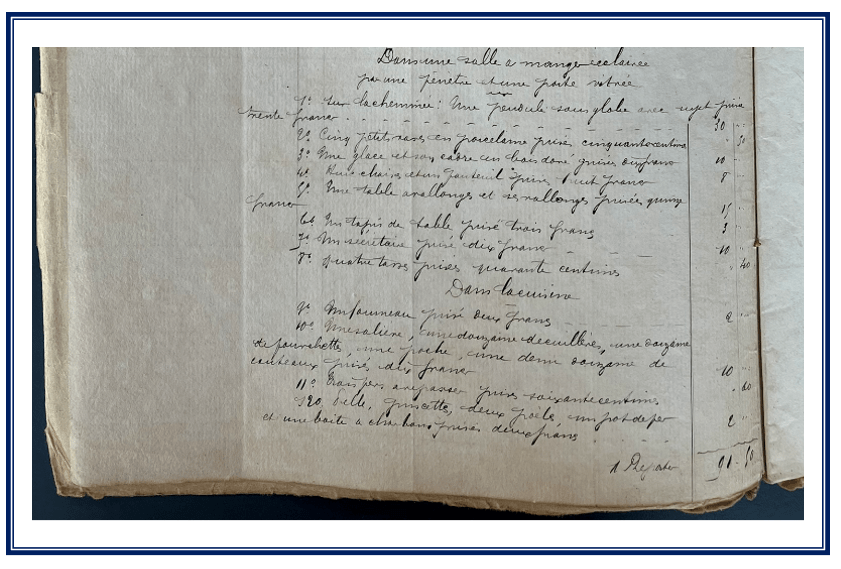 Dans une salle a manger eclairée
par une fenetre et une porte vitrée
1º Sur la cheminée: Une pendule sous globe avec sujet prisée
trente francs 30 "
2º Cinq petits vases en porcelaine prisés cinquante centimes " 50
3º Une glace et son cadre en bois doré prisés dix francs 10 "
4º chaises et un fauteuil prisés huit francs 8 "
5º Une table a rallonges et ses rallonges prisées quinze
francs 15 "
6º Un tapis de table prisé trois francs 3 "
7º Un secrétaire prisé dix francs 10 "
8º quatre tasses prisés quarante centimes " 40
Dans la cuisine
9º Un fourneau prisé deux francs 2 "
10º Une salière, une douzaine de cuillères, une douzaine
de fourchettes, une poche, une demi douzaine de
couteaux prisés dix francs 10 "
11º Trois fers a repasser prisés soixante centimes " 60
12º Pelle, pincettes, deux poêles, un pot de fer
et une boite a charbon prisés deux francs 2 "
A Reporter 91 50